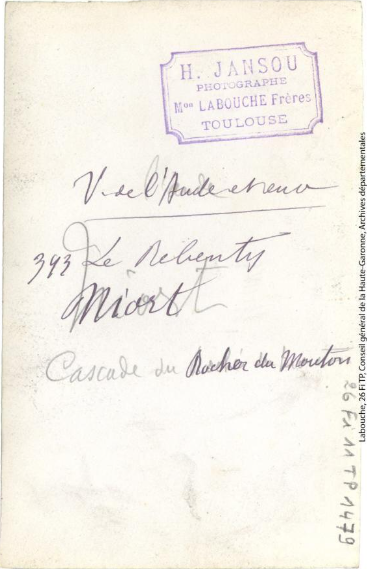 H. JANSOU
PHOTOGRAPHE
Mon LABOUCHE Frères
TOULOUSE
V. de l'Aude et env
393 Le Rebenty
Niort
Cascade du Rocher du Mouton
26 Fi 11 TP 1479
Labouche, 26 Fi TP, Conseil général de la Haute-Garonne, Archives départementales